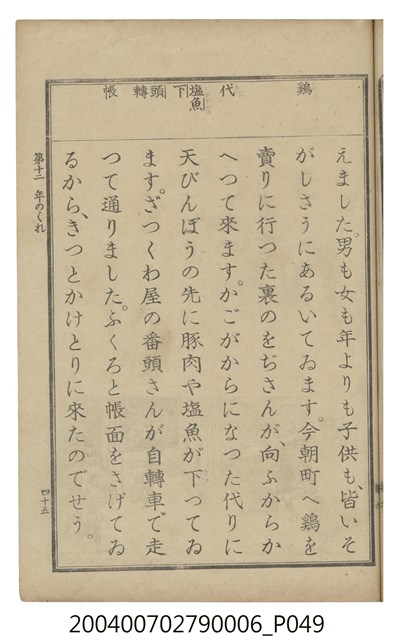 鷄
代
塩魚
下
頭
轉
帳
えました。男も女も年よりも子供も、皆いそ
がしさうにあるいてゐます。今朝町へ鷄を
賣りに行つた裏のをぢさんが、向ふからか
へつて來ます。かごがからになつた代りに
天びんぼうの先に豚肉や塩魚が下つてゐ
ます。ざつくわ屋の番頭さんが自轉車で走
つて通りました。ふくろと帳面をさげてゐ
るから、きつとかけとりに來たのでせう。
第十二 年のくれ
四十五
200400702790006_P049